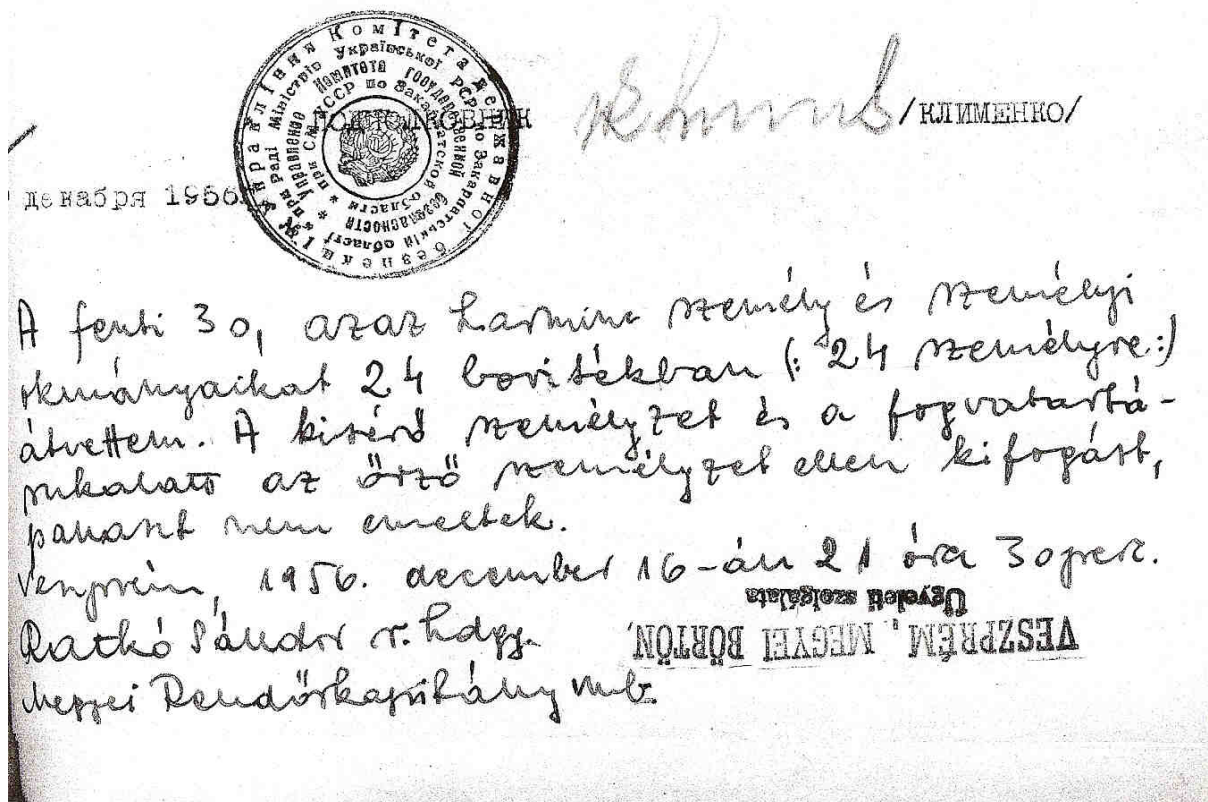 Управління Комітета державної безпеки
при Раді Міністрів Української РСР по Закарпатській області
Управление Комитета государственной безопасности
при СМ УССР по Закарпатской области
ПОДПОЛКОВНИК
/КЛИМЕНКО/
декабря 1956
A fenti 30, azaz harminc személy és személyi
okmányaikat 24 boritékban (: 24 személyre:)
átvettem. A kisérő személyzet és a fogvatartá-
sukalatt az őrző személyzet ellen kifogást,
panaszt nem emeltek.
Veszprém, 1956. december 16-án 21 óra 30 perc.
Ratkó Sándor r. hdgy.
Megyei Rendőrkapitány mb.
VESZPRÉM, MEGYEI BÖRTÖN,
Ügyeleti szolgálata